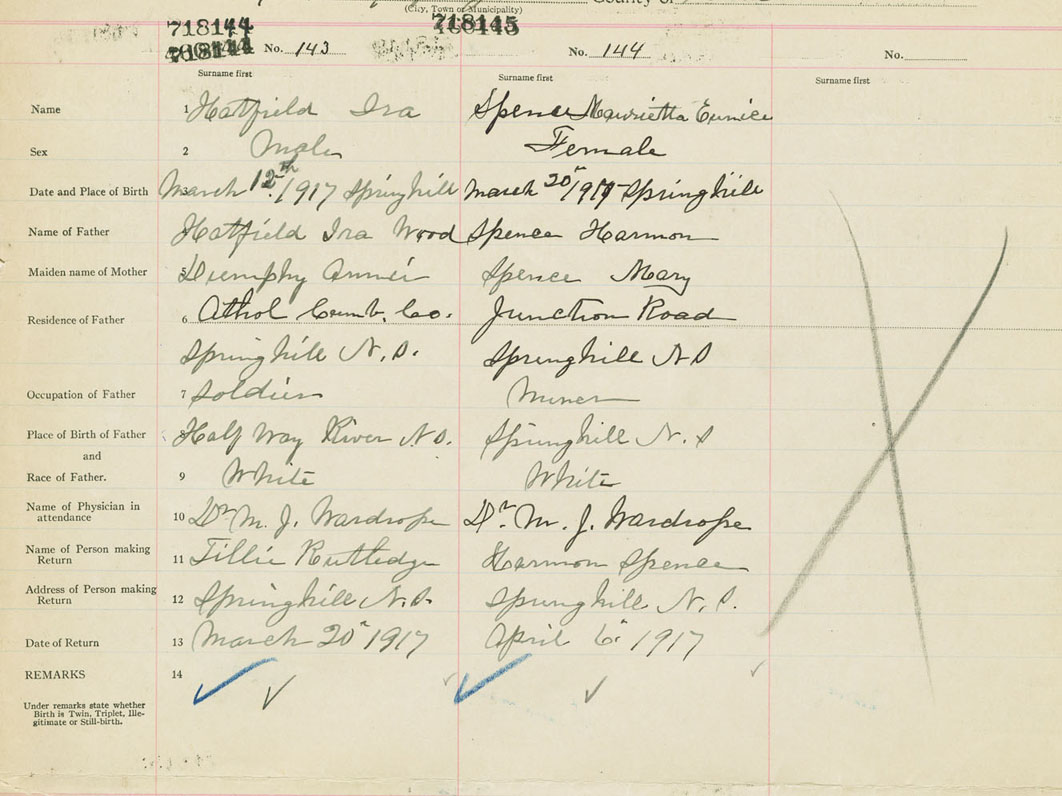 (City, Town or Municipality) County of
718144 718145
718144 No. 143 No. 144 No.
Surname first Surname first Surname first
Name 1 Hatfield Ira Spence Hawrietta Eunice
Sex 2 Male Female
Date and Place of Birth 3 March 12th/1917 Springhill March 20th/1917 Springhill
Name of Father Hatfield Ira Wood Spence Harmon
Maiden name of Mother 5 Dumphy Annie Spence Mary
Residence of Father 6 Athol Cumb. Co. Junction Road
Springhill N.S. Springhill N S
Occupation of Father 7 Soldier Miner
Place of Birth of Father 8 Half Way River N S. Springhill N. S
and
Race of Father. 9 White White
Name of Physician in
attendance 10 Dr M. J. Wardrope Dr. M. J. Wardrope
Name of Person making
Return 11 Tillie Rutledge Harmon Spence
Address of Person making
Return 12 Springhill N.S. Springhill N. S.
Date of Return 13 March 20th 1917 April 6th 1917
REMARKS 14
Under remarks state whether
Birth is Twin, Triplet, Ille-
gitimate or Still-birth.